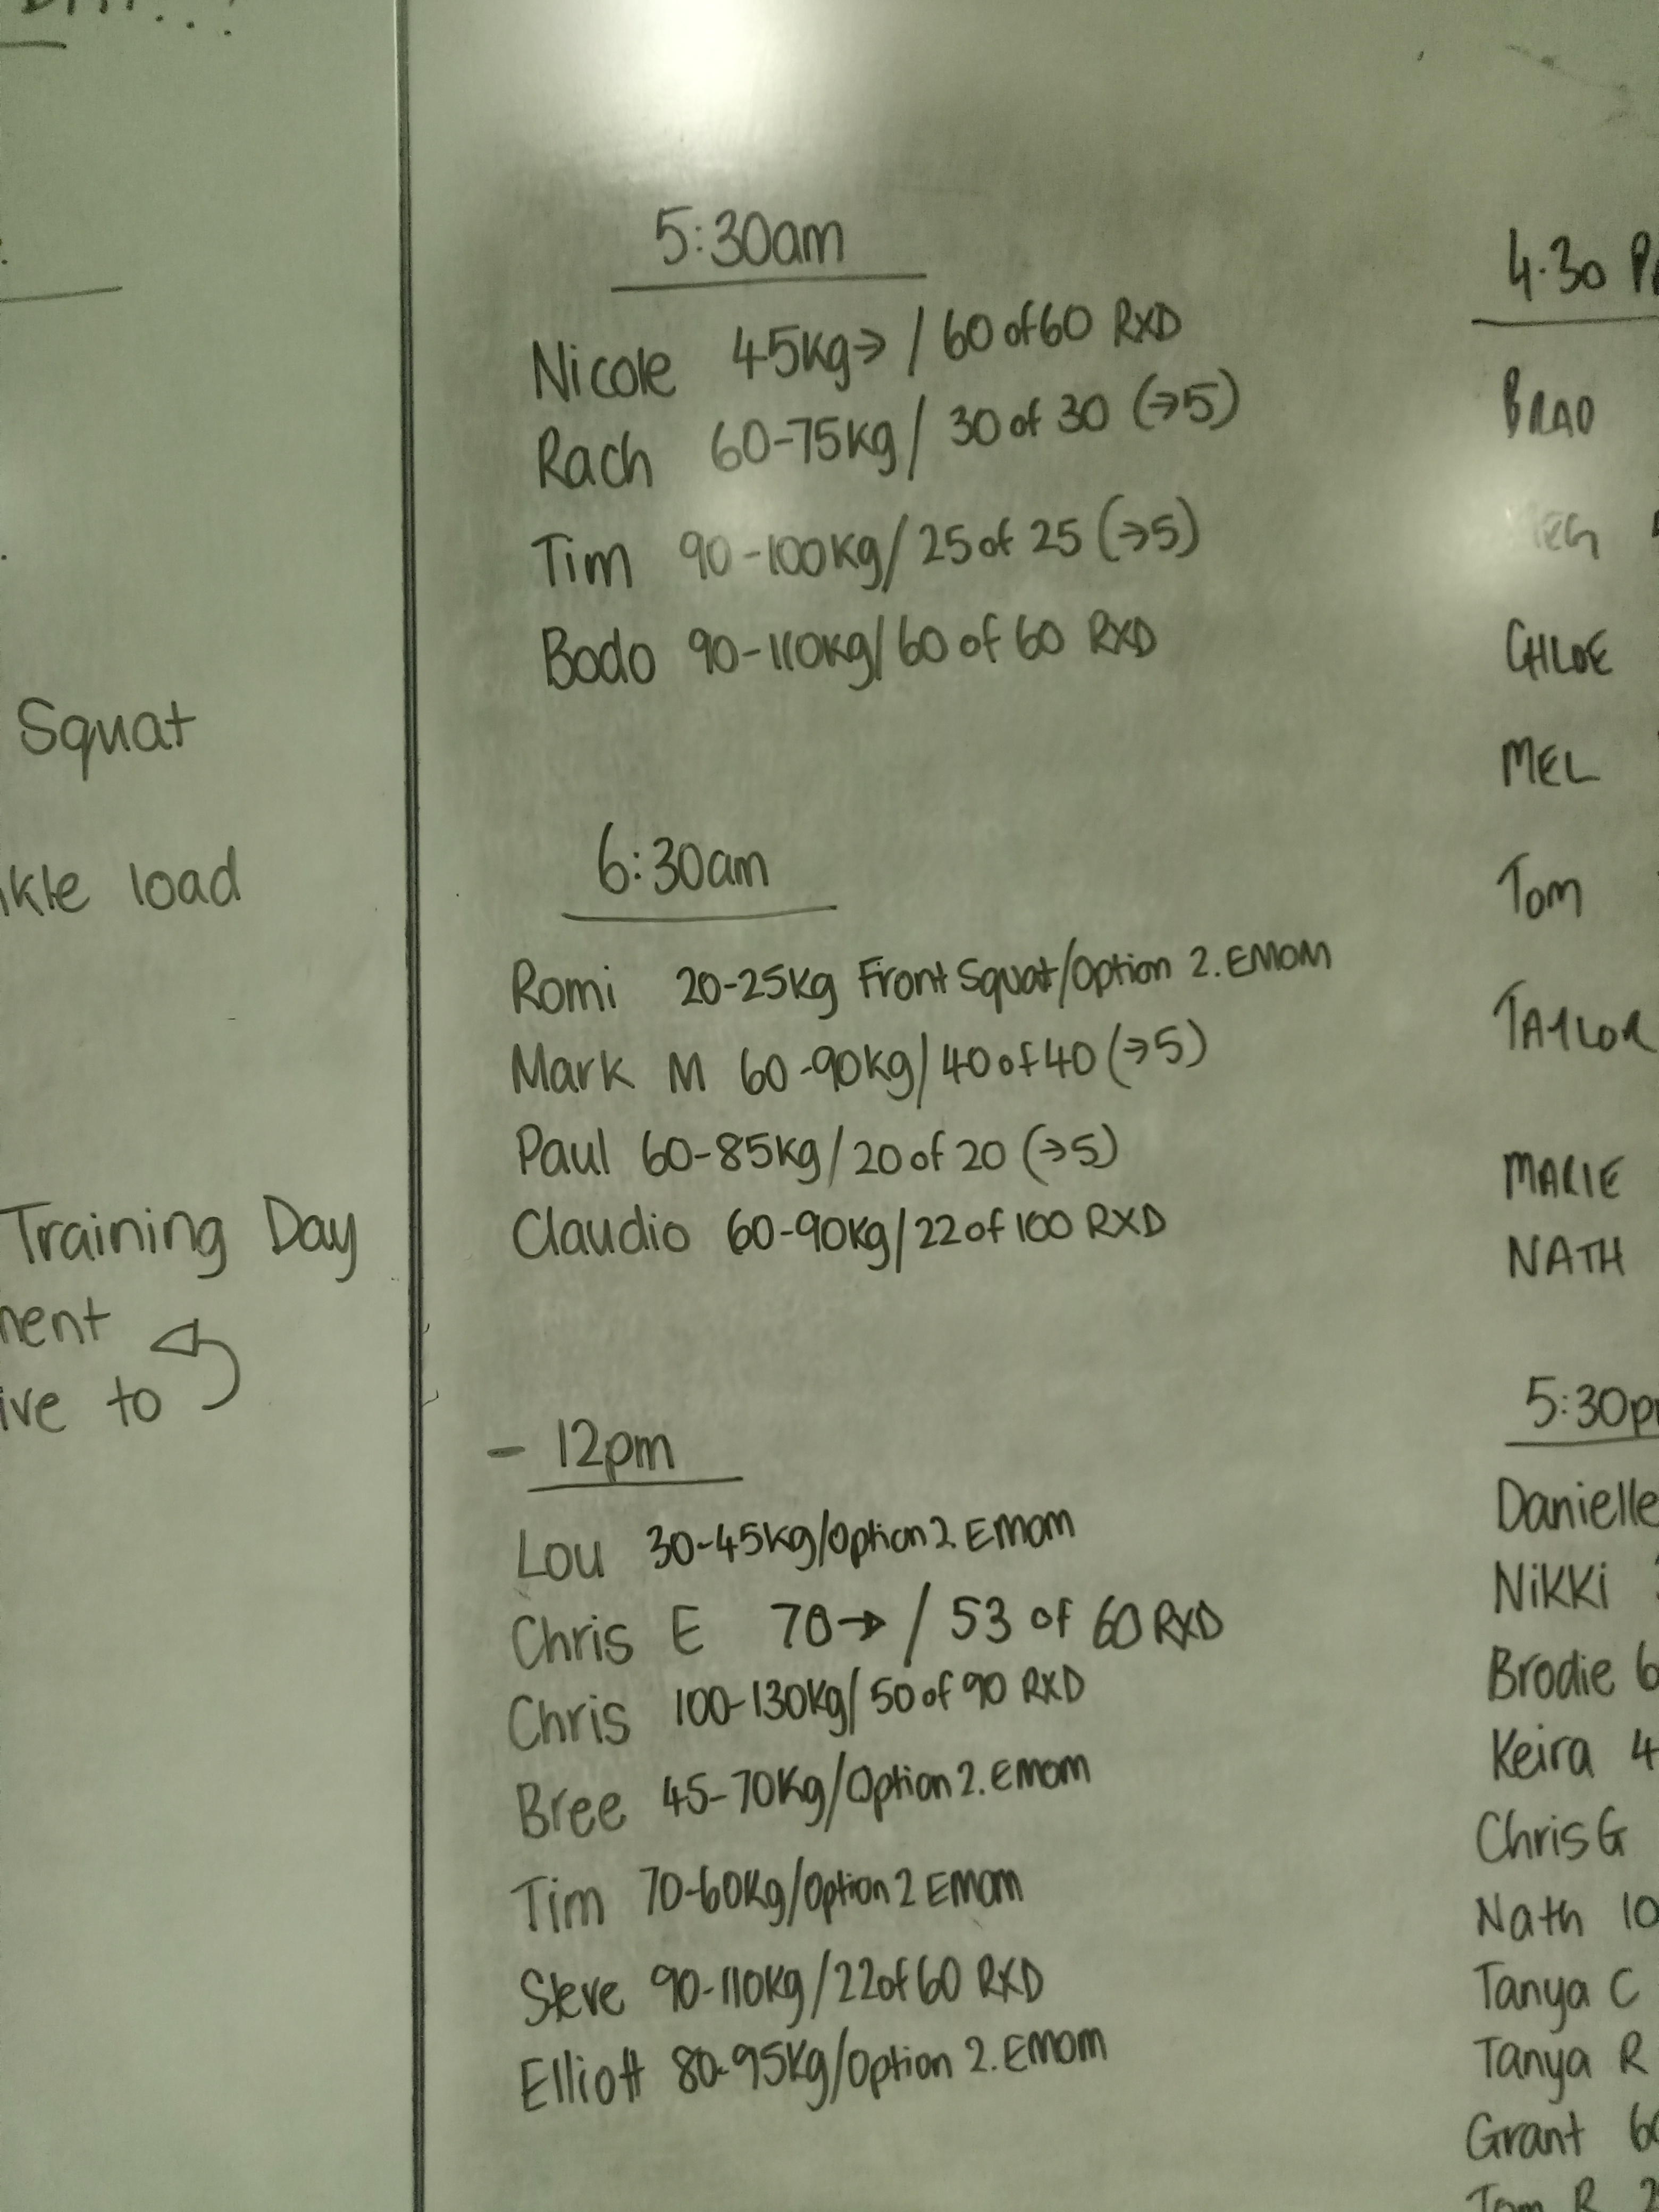 Squat
load
Training Day
to
5:30am
Nicole 45kg→ / 60 of 60 RXD
Rach 60-75kg / 30 of 30 (→5)
Tim 90-100kg / 25 of 25 (→5)
Bodo 90-110kg / 60 of 60 RXD
6:30am
Romi 20-25kg Front Squat/Option 2. EMOM
Mark M 60-90kg / 40 of 40 (→5)
Paul 60-85kg / 20 of 20 (→5)
Claudio 60-90kg / 22 of 100 RXD
- 12pm
Lou 30-45kg/Option 2 EMOM
Chris E 70→ / 53 of 60 RXD
Chris 100-130kg / 50 of 90 RXD
Bree 45-70kg/Option 2. EMOM
Tim 70-60kg/Option 2 EMOM
Steve 90-110kg / 22 of 60 RXD
Elliott 80-95kg/Option 2. EMOM
4.30
BRAD
CHLOE
MEL
TOM
TAYLOR
MARIE
NATH
5:30p
Danielle
Nikki
Brodie 6
Keira 4
Chris G
Nath 10
Tanya C
Tanya R
Grant 6
Tom R